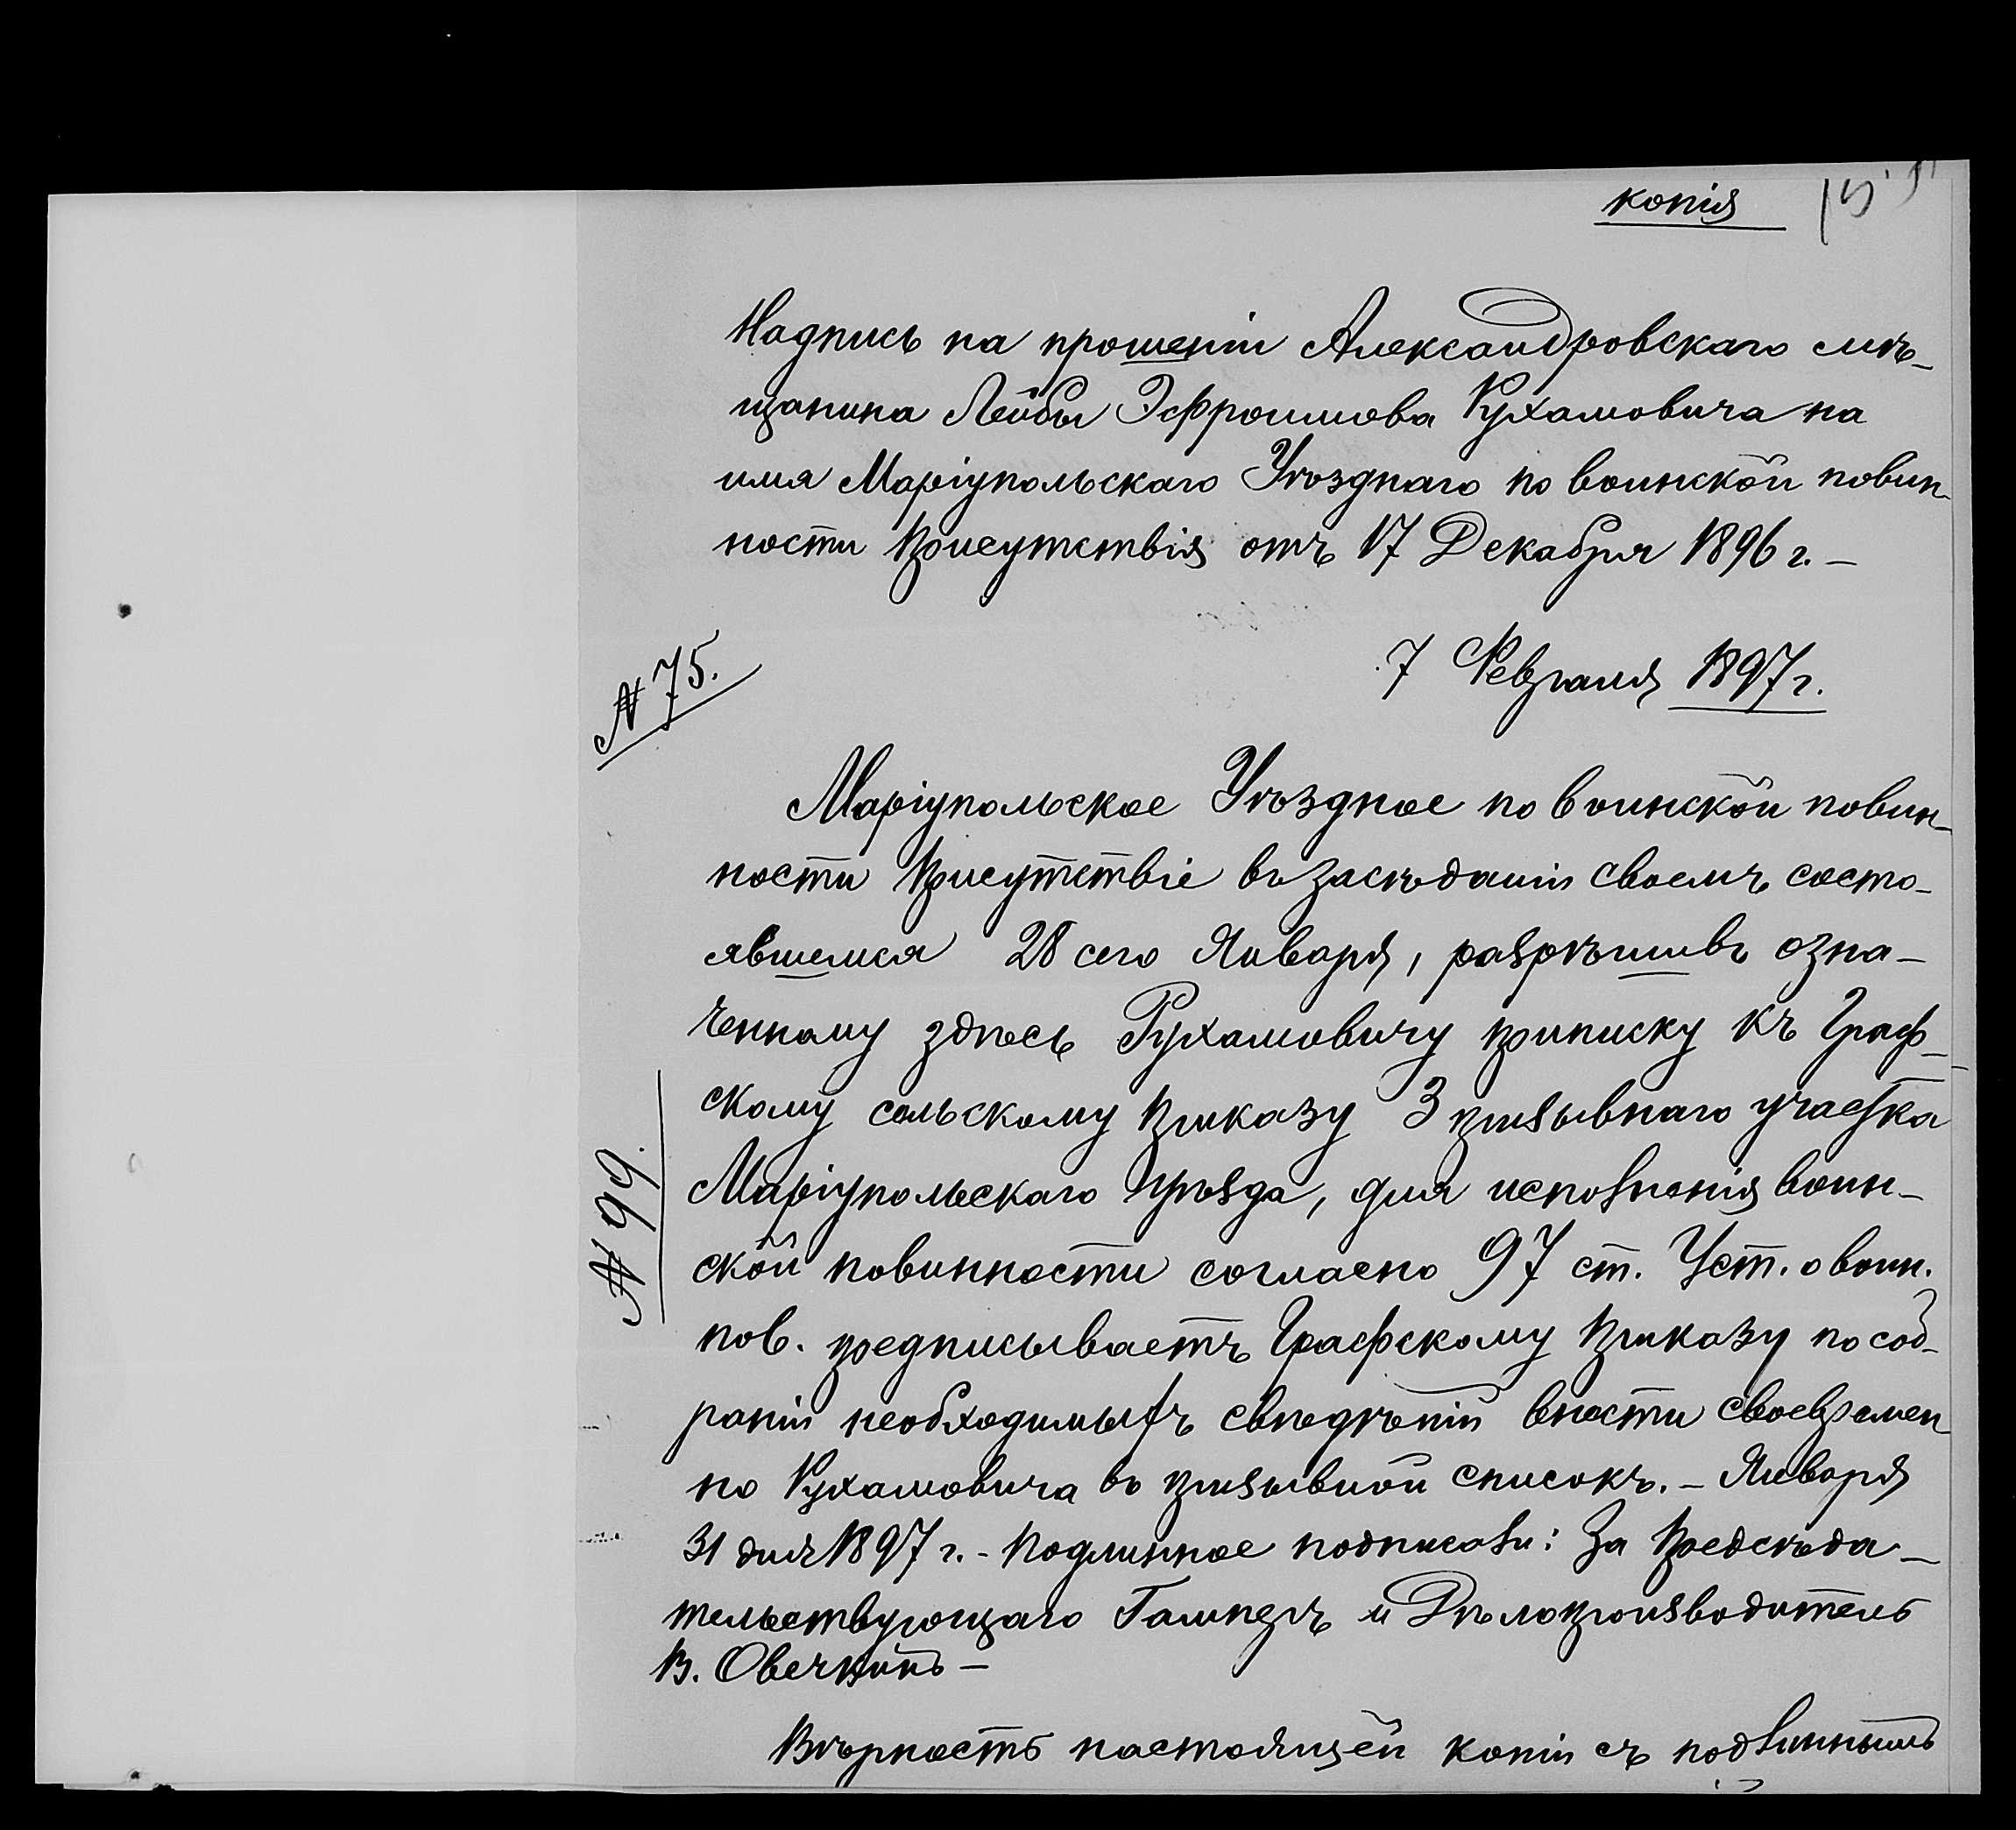 копія
Надпись на прошеніи Александровскаго мѣ-
щанина Лейбы Эфроимова Рухамовича на
имя Маріупольскаго Уѣзднаго по воинской повин-
ности Присутствія отъ 17 Декабря 1896 г. –
№ 75.
7 Февраля 1897 г.
Маріупольское Уѣздное по воинской повин-
ности Присутствіе въ засѣданіи своемъ состо-
явшемся 28 сего Января, разрѣшивъ озна-
ченному здѣсь Рухамовичу приписку къ Граф-
скому сельскому Приказу 3 призывнаго участка
№ 99.
Маріупольскаго уѣзда, для исполненія воин-
ской повинности согласно 97 ст. Уст. о воин.
пов. предписываетъ Графскому Приказу по соб-
раніи необходимыхъ свѣдѣній внести своевремен
но Рухамовича въ призывной списокъ. – Января
31 дня 1897 г. - Подлинное подписали: За Предсѣда-
тельствующаго Гамперъ и Дѣлопроизводитель
В. Овечкинъ –
Вѣрность настоящей копіи съ подлиннымъ